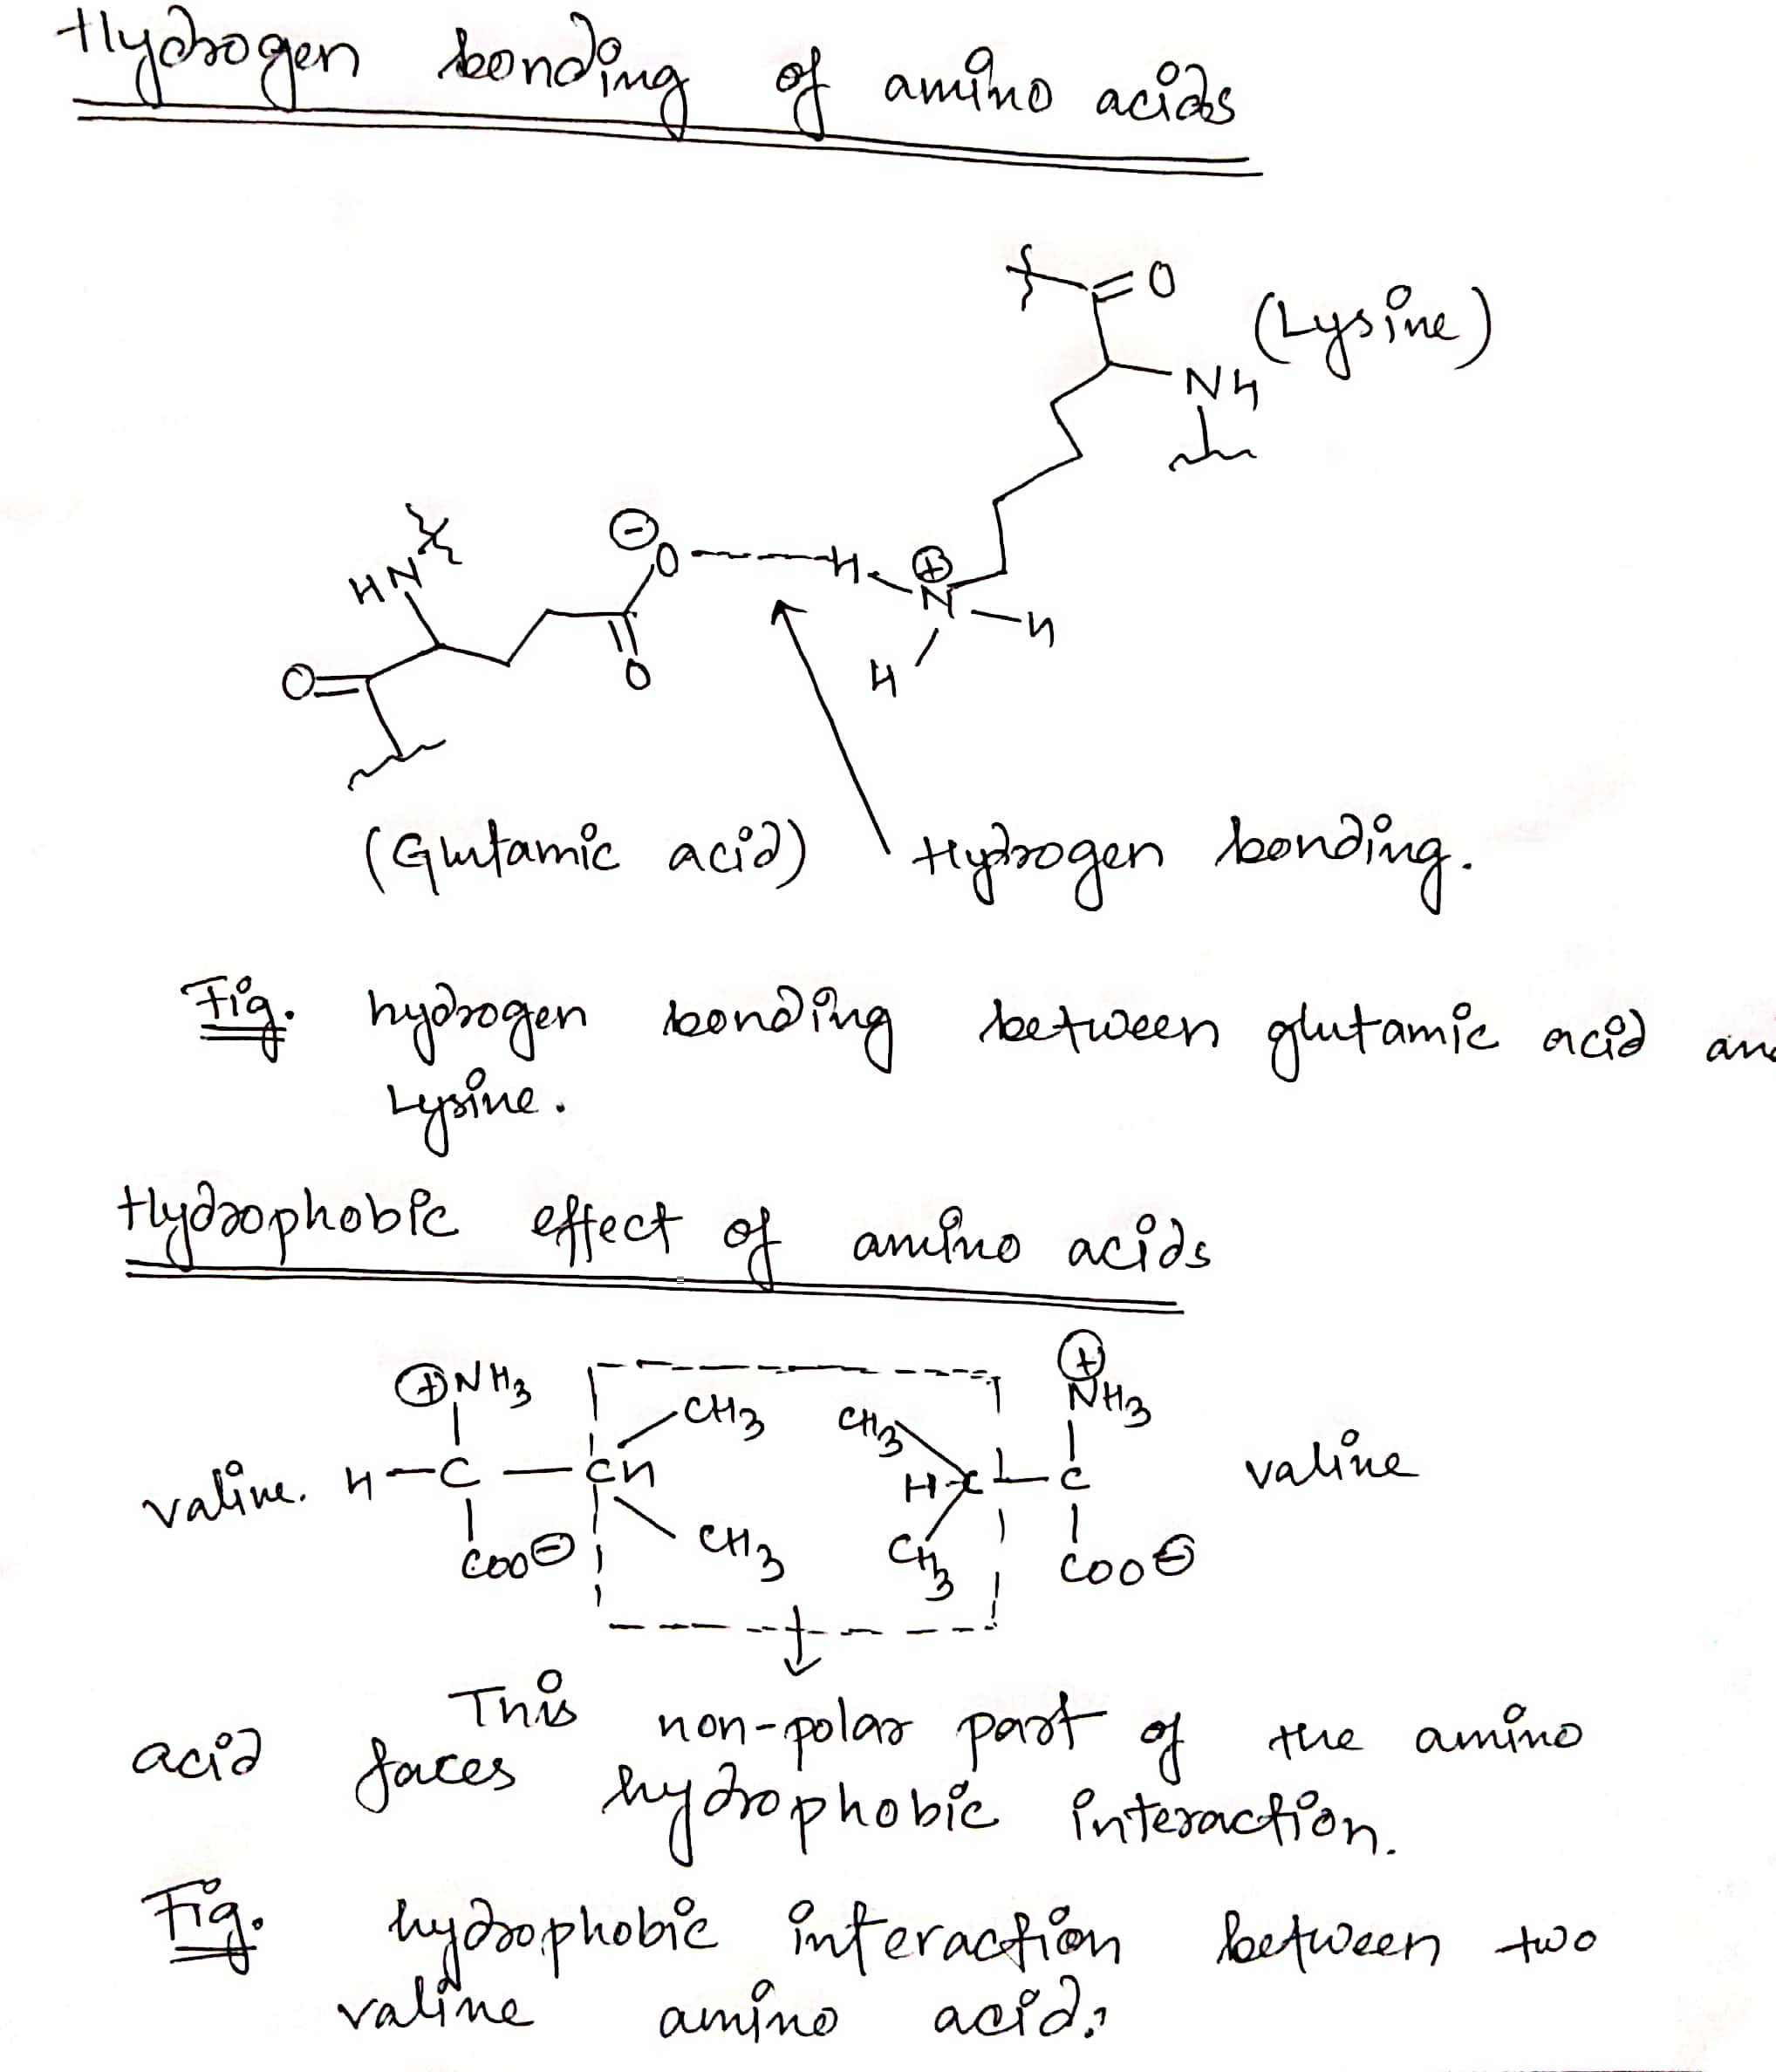 Hydrogen bonding of amino acids
O
(Lysine)
NH
⊖
O ---- H ⊕
HN
N - H
O
O
H
(Glutamic acid) Hydrogen bonding.
Fig. hydrogen bonding between glutamic acid an
Lysine.
Hydrophobic effect of amino acids
⊕NH3
⊕
NH3
CH3 CH3
valine. H - C - CH
H - C - C
valine
COO⊖ CH3 CH3 COO⊖
This non-polar part of the amino
acid faces hydrophobic interaction.
Fig. hydrophobic interaction between two
valine amino acid.